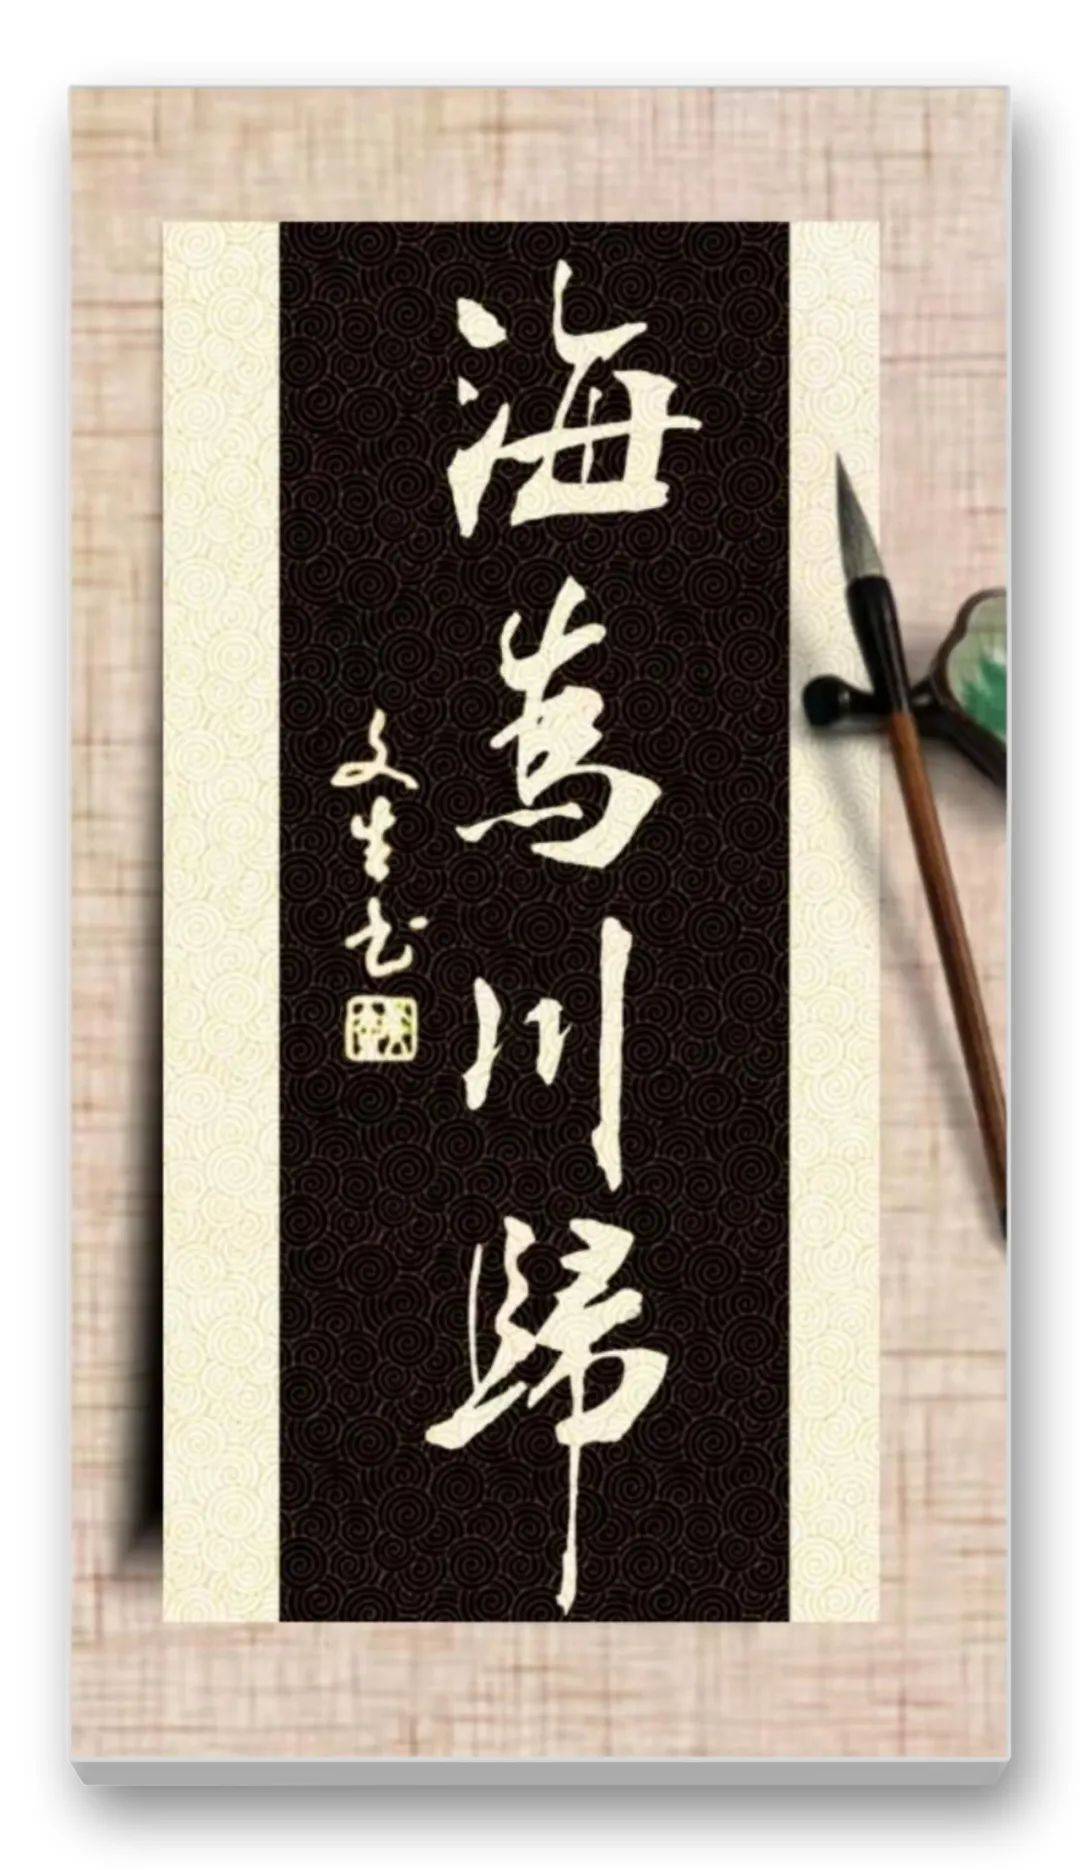 海為川歸
文生书